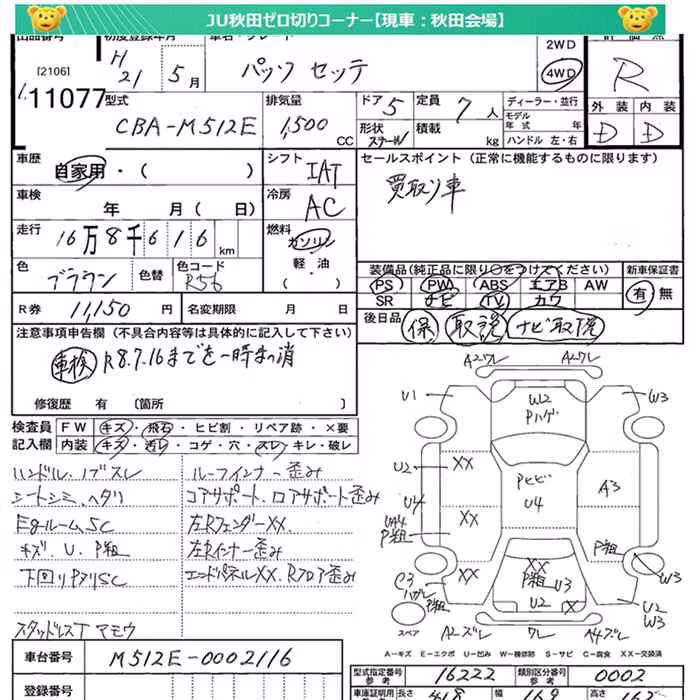 JU秋田ゼロ切りコーナー【現車：秋田会場】
出品番号 初度登録年月 車名・グレード
[2106] H 21 5月 パッソ セッテ 2WD 4WD R
11077 型式 CBA-M512E 排気量 1,500 CC
ドア 5 定員 7人 ディーラー・並行
形状 積載 kg モデル年式 年 ハンドル 左・右
外装 内装
D D
車歴 自家用・( ) シフト IAT
セールスポイント (正常に機能するものに限ります)
買取り車
車検 年 月 ( 日) 冷房 AC
走行 16万8千616 km 燃料 ガソリン 軽・油 ( )
色 ブラウン 色替 色コード R56
装備品(純正品に限り○をつけてください) 新車保証書
PS PW ABS エアB AW 有・無
SR ナビ TV カワ
R券 11,150円 名変期限 月 日
後日品 保 取説 ナビ取説
注意事項申告欄 (不具合内容等は具体的に記入して下さい)
車検 R8.7.16まで 一時まっ消
修復歴 有 [箇所 ]
検査員記入欄 FW キズ・飛石・ヒビ割・リペア跡・×要
内装 キズ・汚レ・コゲ・穴・スレ・キレ・破レ
ハンドル.ノブスレ ルーフインナー歪み
シートシミ.ヘタリ コアサポート.ロアサポート歪み
Egルーム.SC 左RフェンダーXX.
キズ.U.P祖 左Rインナー歪み
下回りPヌリSC エンドパネルXX.Rフロア歪み
スタッドレスT アモウ
A2ワレ A2ワレ
U1 W2 Pハゲ W3
U2 XX Pヒビ U4 A3
U4 UA4 P祖 XX P祖
C3 ハゲレ P祖 XX XX P祖 U3 U2 X W3
U2 W3
スペア A2ズレ ワレ A4ズレ
A－キズ E－エクボ U－凹み W－補修跡 S－サビ C－腐食 XX－交換済
車台番号 M512E-0002116
型式指定番号 参考 16222 類別区分番号 参考 0002
登録番号
車庫証明用 長さ 418 幅 169 高さ